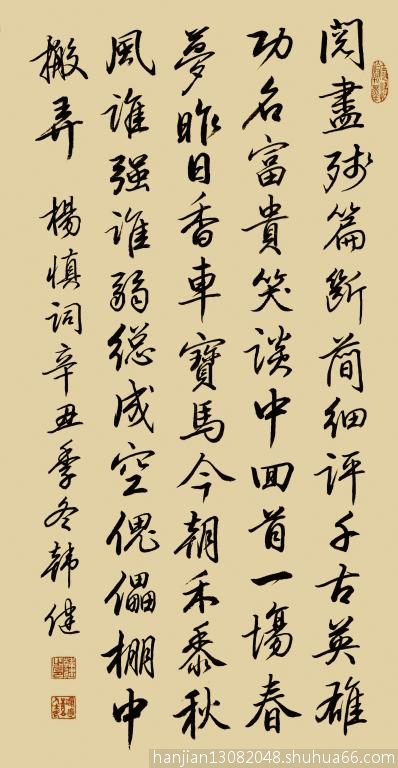 阅盡残篇断简细评千古英雄
功名富貴笑谈中回首一場春
夢昨日香車寶馬今朝禾黍秋
風誰强誰弱總成空傀儡棚中
搬弄 楊慎词辛丑季冬韩健
hanjian13082048.shuhua66.com